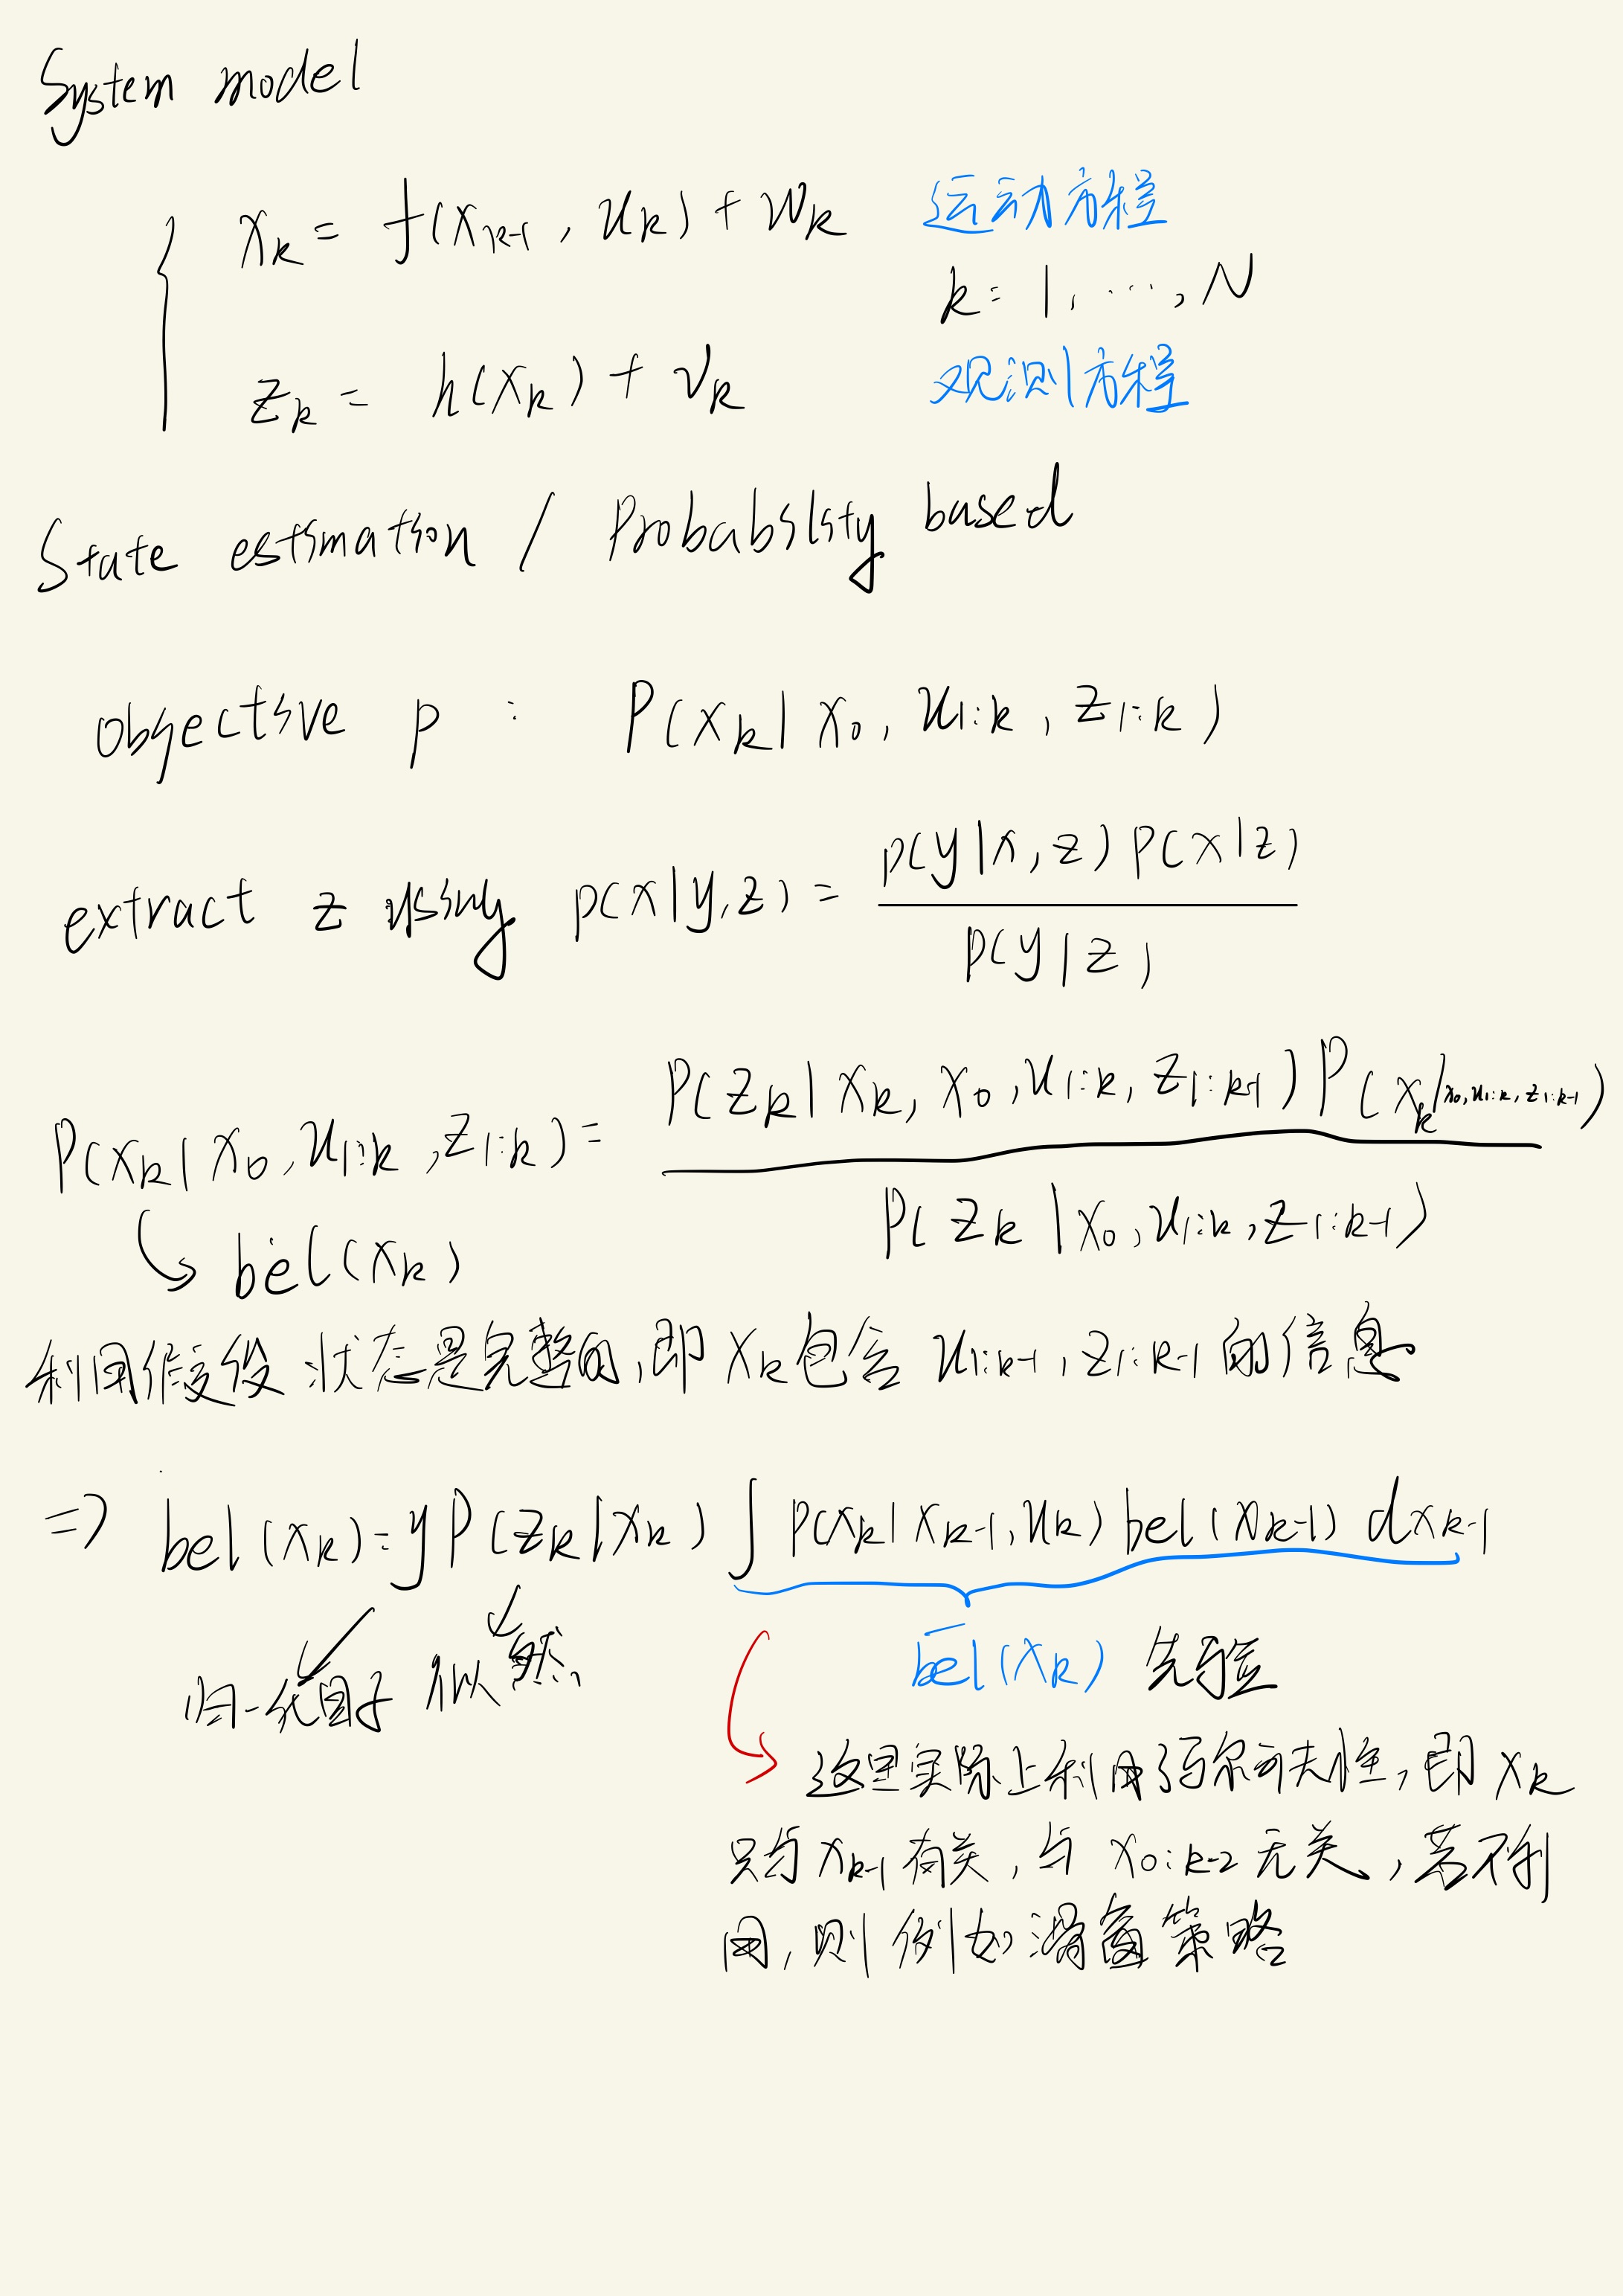 System model
x_k = f(x_{k-1}, u_k) + w_k 运动方程
k = 1, ..., N
z_k = h(x_k) + v_k 观测方程
State estimation / Probability based
objective p : P(x_k | x_0, u_{1:k}, z_{1:k})
extract z using p(x|y,z) = \frac{p(y|x,z) p(x|z)}{p(y|z)}
P(x_k | x_0, u_{1:k}, z_{1:k}) = \frac{P(z_k | x_k, x_0, u_{1:k}, z_{1:k-1}) P(x_k | x_0, u_{1:k}, z_{1:k-1})}{P(z_k | x_0, u_{1:k}, z_{1:k-1})}
bel(x_k)
利用假设 状态是完整的,即 x_k 包含 u_{1:k-1}, z_{1:k-1} 的信息
=> bel(x_k) = y P(z_k | x_k) ∫ p(x_k | x_{k-1}, u_k) bel(x_{k-1}) dx_{k-1}
归一化因子 似然 \overline{bel}(x_k) 先验
这里实际上利用了马尔可夫性,即 x_k
只与 x_{k-1} 有关,与 x_{0:k-2} 无关,若不利
用,则 例如 滑窗策略